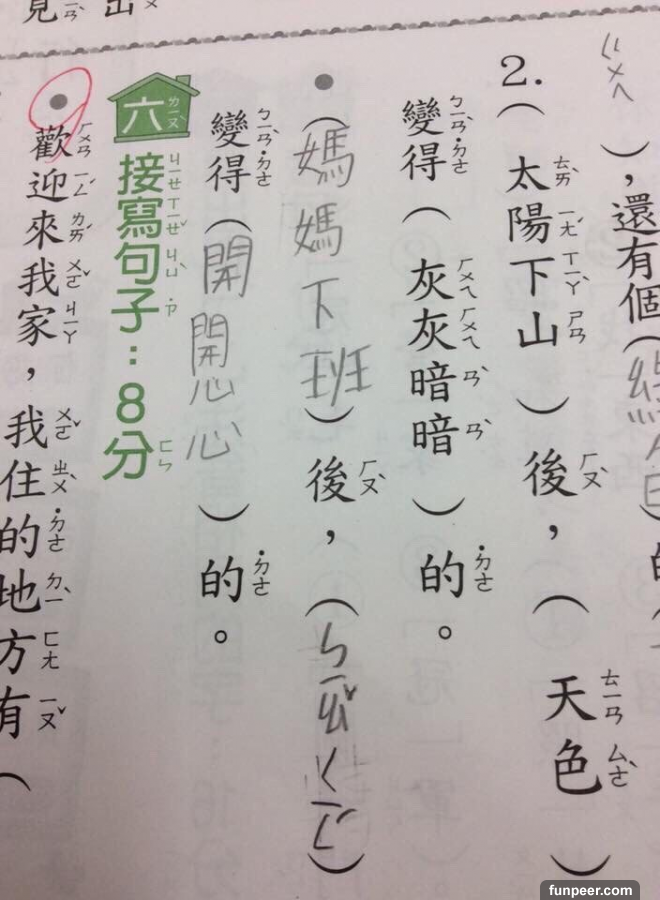 出
見
ㄍㄨㄟ），還有個（
2.（太陽下山）後，（天色）
變得（灰灰暗暗）的。
●（媽媽下班）後，（ㄅㄧㄠˇㄑㄧㄥˊ）
變得（開開心心）的。
六 接寫句子：8分
●歡迎來我家，我住的地方有（
funpeer.com